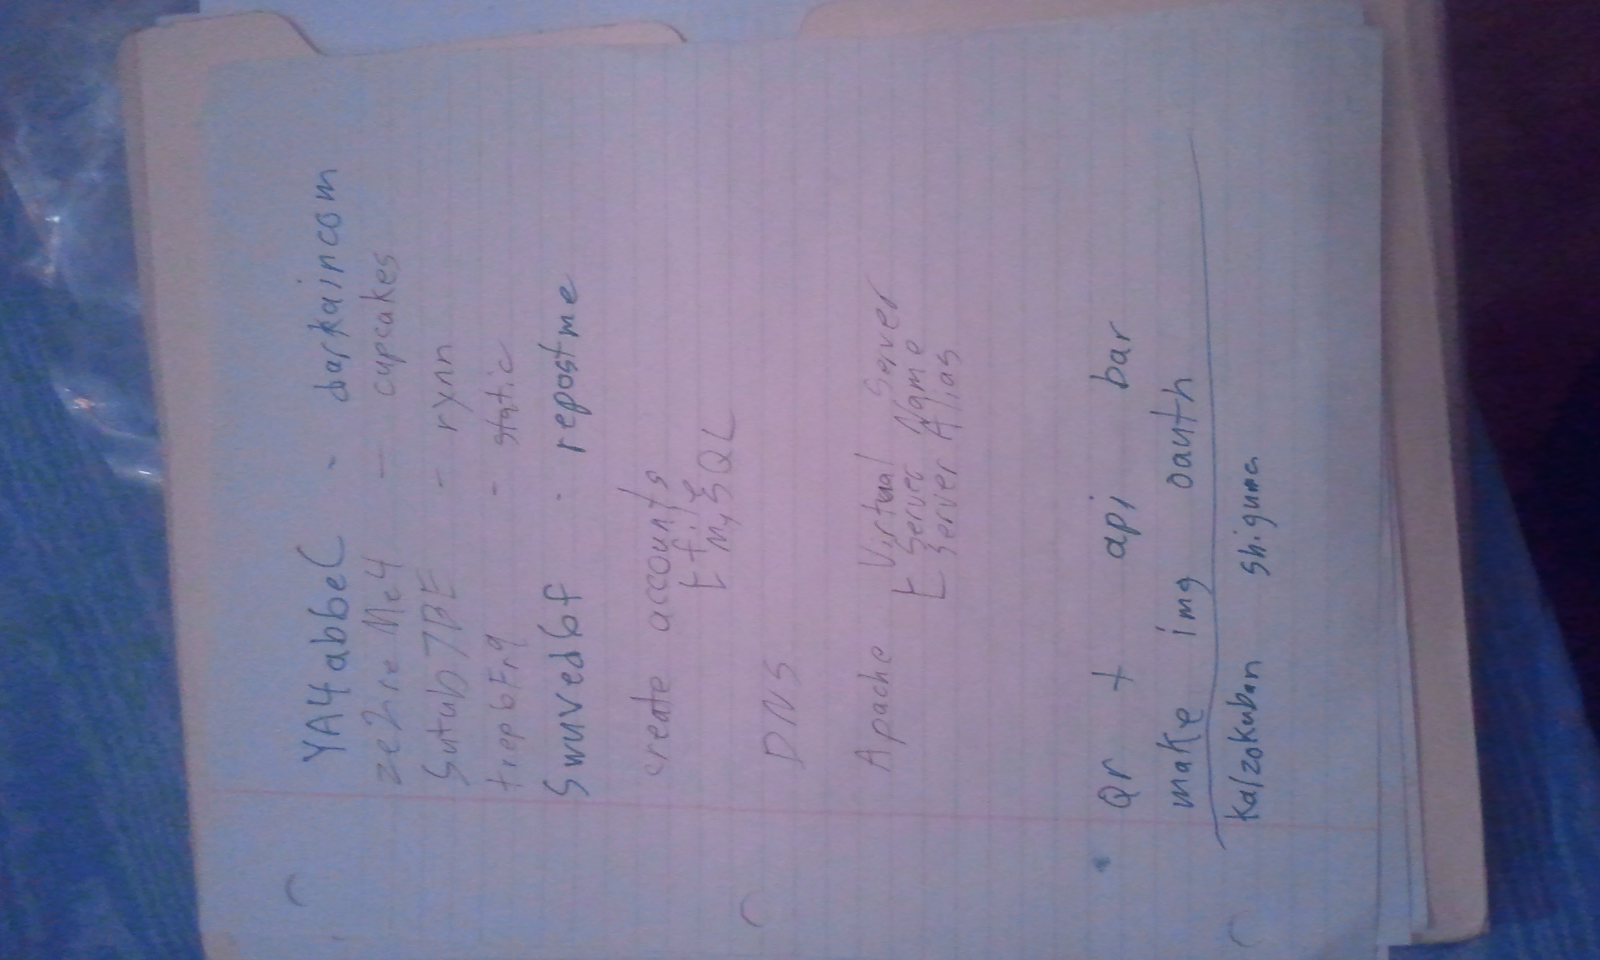 YA4abbeC - darkaincom
ze2reMe4 - cupcakes
Sutub7BE - rxnn
trepbFrq - static
Swuved6f - repostme
create accounts
file
MySQL
DNS
Apache Virtual Server
Server Name
Server Alias
Qr + api bar
make img oauth
kaizokuban shiguma